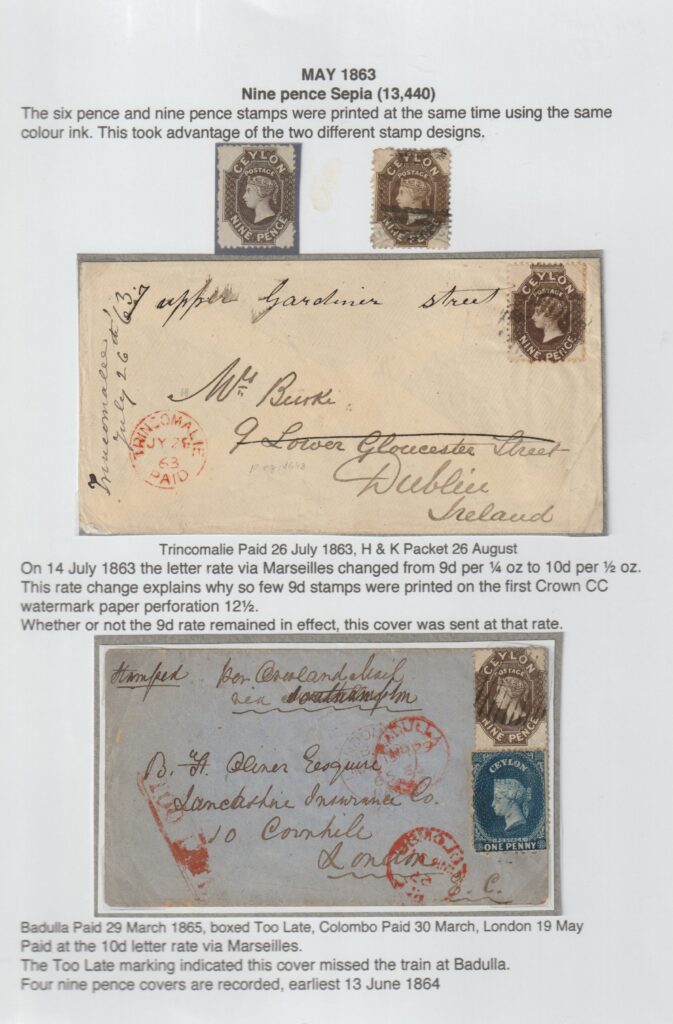 MAY 1863
Nine pence Sepia (13,440)
The six pence and nine pence stamps were printed at the same time using the same
colour ink. This took advantage of the two different stamp designs.
CEYLON
POSTAGE
NINE PENCE
CEYLON
POSTAGE
NINE PENCE
7 upper Gardiner street
CEYLON
POSTAGE
NINE PENCE
Trincomalee
July 26th 63
Mrs Burke
9 Lower Gloucester Street
Dublin
Ireland
TRINCOMALIE
JY 26
63
PAID
Trincomalie Paid 26 July 1863, H & K Packet 26 August
On 14 July 1863 the letter rate via Marseilles changed from 9d per ¼ oz to 10d per ½ oz.
This rate change explains why so few 9d stamps were printed on the first Crown CC
watermark paper perforation 12½.
Whether or not the 9d rate remained in effect, this cover was sent at that rate.
Stamped per Overland Mail
via Southampton
CEYLON
NINE PENCE
CEYLON
POSTAGE
ONE PENNY
BADULLA
Oliver Esquire
Lancashire Insurance Co.
10 Cornhill
London
E. C.
TOO
Badulla Paid 29 March 1865, boxed Too Late, Colombo Paid 30 March, London 19 May
Paid at the 10d letter rate via Marseilles.
The Too Late marking indicated this cover missed the train at Badulla.
Four nine pence covers are recorded, earliest 13 June 1864